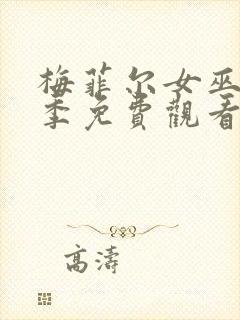 梅菲尔女巫
季免費觀看
高濤